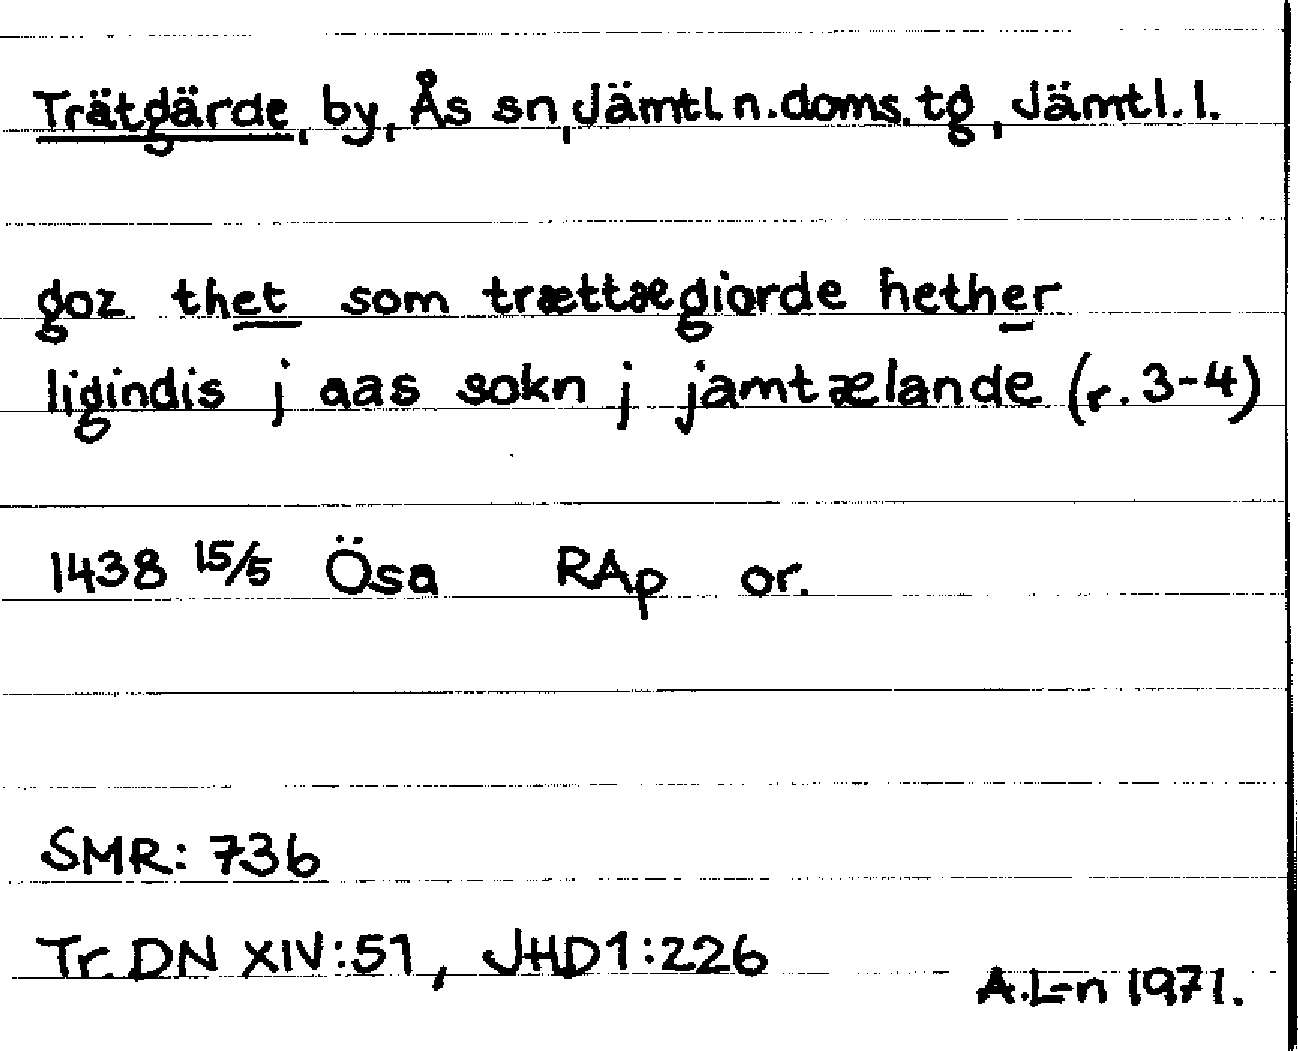 Trätgärde, by, Ås sn, Jämtl. n. doms. tg, Jämtl. l.
goz thet som trættægiorde hether
ligindis j aas sokn j jamtælande (r. 3-4)
1438 15/5 Ösa RAp or.
SMR: 736
Tr. DN XIV:51, JHD1:226
A.L-n 1971.